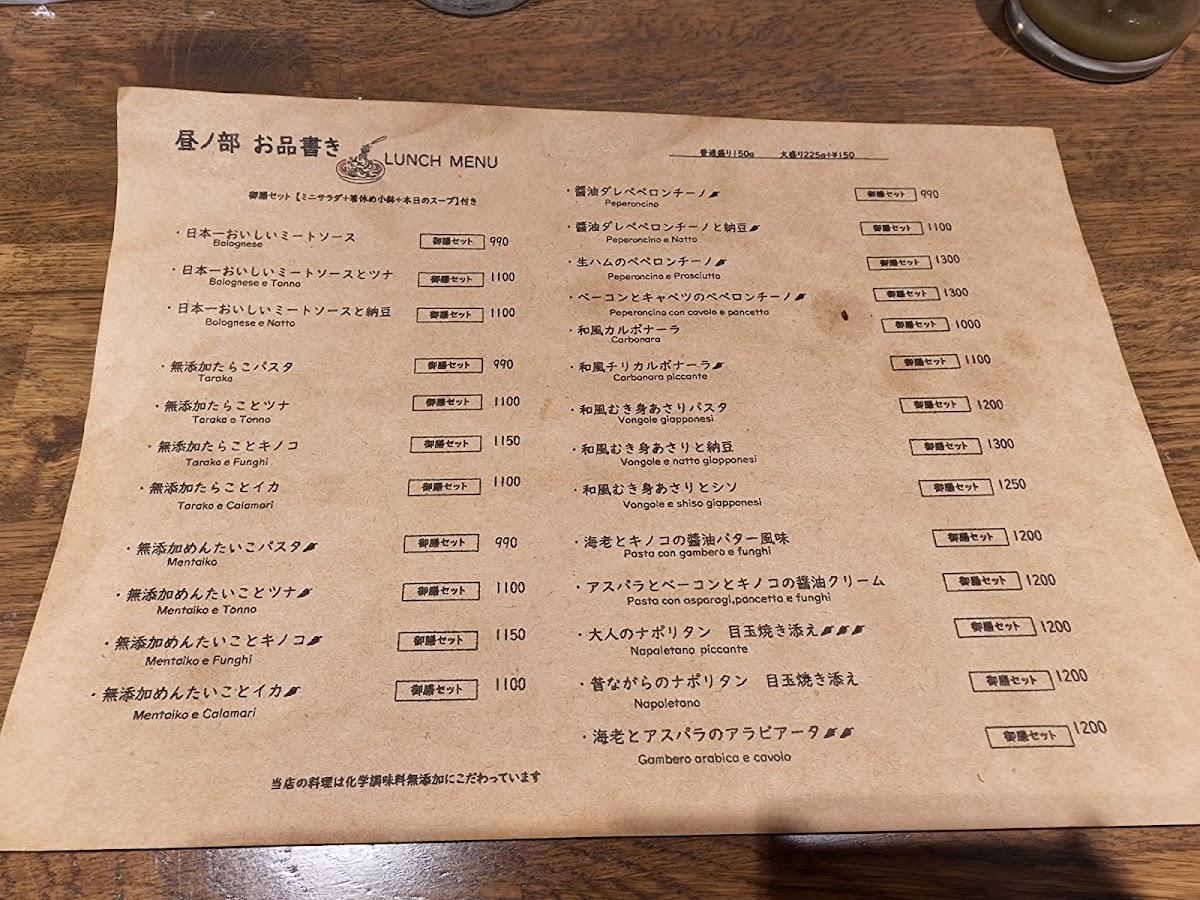 昼ノ部 お品書き LUNCH MENU
御膳セット【ミニサラダ+箸休め小鉢+本日のスープ】付き
・日本一おいしいミートソース 御膳セット 990
Bolognese
・日本一おいしいミートソースとツナ 御膳セット 1100
Bolognese e Tonno
・日本一おいしいミートソースと納豆 御膳セット 1100
Bolognese e Natto
・無添加たらこパスタ 御膳セット 990
Tarako
・無添加たらことツナ 御膳セット 1100
Tarako e Tonno
・無添加たらことキノコ 御膳セット 1150
Tarako e Funghi
・無添加たらことイカ 御膳セット 1100
Tarako e Calamari
・無添加めんたいこパスタ 御膳セット 990
Mentaiko
・無添加めんたいことツナ 御膳セット 1100
Mentaiko e Tonno
・無添加めんたいことキノコ 御膳セット 1150
Mentaiko e Funghi
・無添加めんたいことイカ 御膳セット 1100
Mentaiko e Calamari
当店の料理は化学調味料無添加にこだわっています
普通盛り150g 大盛り225g+¥150
・醬油ダレペペロンチーノ 御膳セット 990
Peperoncino
・醬油ダレペペロンチーノと納豆 御膳セット 1100
Peperoncino e Natto
・生ハムのペペロンチーノ 御膳セット 1300
Peperoncino e Prosciutto
・ベーコンとキャベツのペペロンチーノ 御膳セット 1300
Peperoncino con cavolo e pancetta
・和風カルボナーラ 御膳セット 1000
Carbonara
・和風チリカルボナーラ 御膳セット 1100
Carbonara piccante
・和風むき身あさりパスタ 御膳セット 1200
Vongole giapponesi
・和風むき身あさりと納豆 御膳セット 1300
Vongole e natto giapponesi
・和風むき身あさりとシソ 御膳セット 1250
Vongole e shiso giapponesi
・海老とキノコの醬油バター風味 御膳セット 1200
Pasta con gambero e funghi
・アスパラとベーコンとキノコの醬油クリーム 御膳セット 1200
Pasta con asparagi,pancetta e funghi
・大人のナポリタン 目玉焼き添え 御膳セット 1200
Napoletano piccante
・昔ながらのナポリタン 目玉焼き添え 御膳セット 1200
Napoletano
・海老とアスパラのアラビアータ 御膳セット 1200
Gambero arabica e cavolo